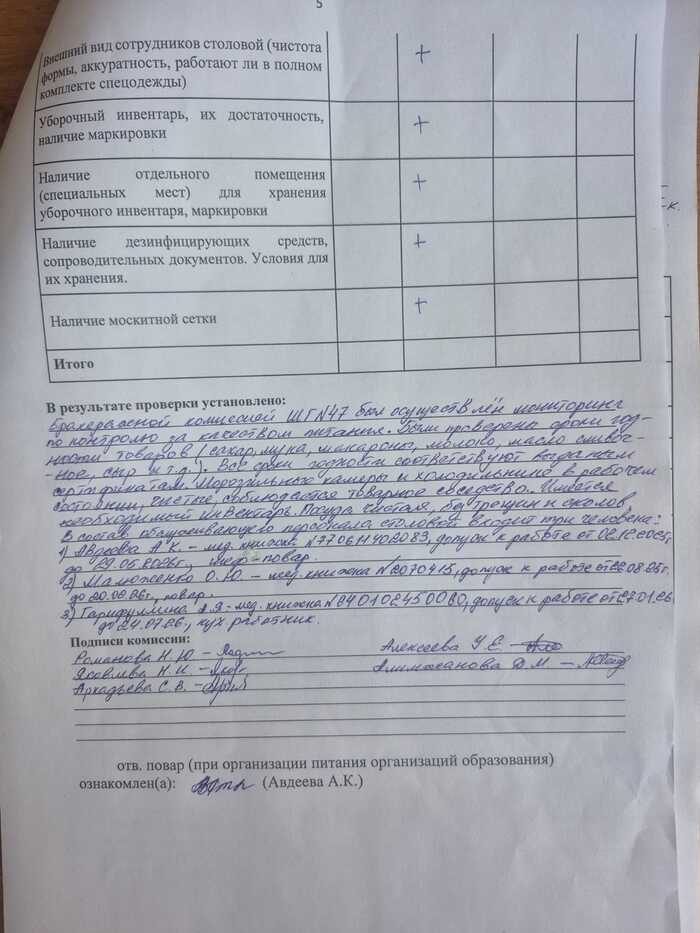 5
Внешний вид сотрудников столовой (чистота
формы, аккуратность, работают ли в полном
комплекте спецодежды)
+
Уборочный инвентарь, их достаточность,
наличие маркировки
+
Наличие отдельного помещения
(специальных мест) для хранения
уборочного инвентаря, маркировки
+
Наличие дезинфицирующих средств,
сопроводительных документов. Условия для
их хранения.
+
Наличие москитной сетки
+
Итого
В результате проверки установлено:
Бракеражной комиссией ШГN47 был осуществлён мониторинг
по контролю за качеством питания. Были проверены сроки год-
ности товаров (сахар, мука, макароны, молоко, масло сливоч-
-ное, сыр и т.д.). Все сроки годности соответствуют выданным
сертификатам. Морозильные камеры и холодильники в рабочем
состоянии, чистые, соблюдается товарное соседство. Имеется
необходимый инвентарь. Посуда чистая, без трещин и сколов.
В состав обслуживающего персонала столовой входит три человека:
1) Авдеева А.К. – мед. книжка N770611402083, допуск к работе от 02.12.2025г.
до 29.05.2026г., шеф-повар.
2) Малюженко О.Ю. – мед. книжка N2070415, допуск к работе от 22.08.25г.
до 20.02.26г., повар.
3) Гарифуллина А.Я – мед. книжка N940102450060, допуск к работе от 27.01.26
до 24.07.26г., кух. работник.
Подписи комиссии:
Романова Н.Ю – Алексеева У.Е. –
Яковлева Н.И. – Алимжанова Д.М. –
Аркадьева С.В. –
отв. повар (при организации питания организаций образования)
ознакомлен(а): (Авдеева А.К.)